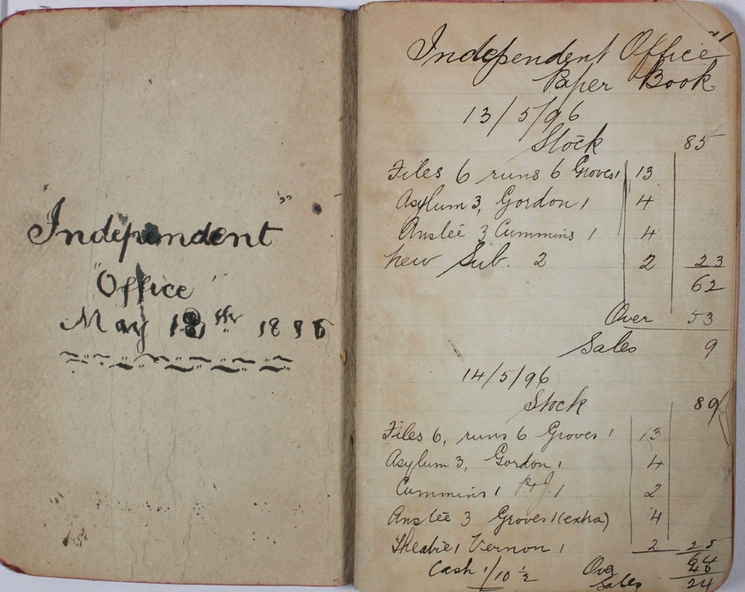 "Independent"
"Office"
May 12th 1896
Independent Office
Paper Book
13/5/96
Stock 85
Files 6 runs 6 Groves 1 13
Asylum 3, Gordon 1 4
Anslee 3 Cummins 1 4
new Sub. 2 2 23
62
Over 53
Sales 9
14/5/96
Stock 89
Files 6, runs 6 Groves 1 13
Asylum 3, Gordon 1 4
Cummins 1 1 2
Anslee 3 Groves 1 (extra) 4
Theatre 1 Vernon 1 2 25
64
Cash 1/10 1/2 Over 40
Sales 24